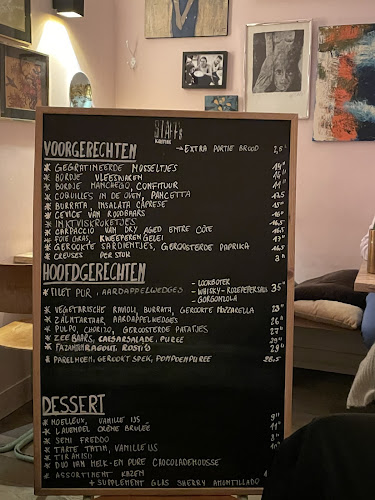 STAFF's
VOORGERECHTEN → EXTRA PORTIE BROOD 2,5
* GEGRATINEERDE MOSSELTJES 14"
* BORDJE VLEESWAREN 16"
* BORDJE MANCHEGO, CONFITUUR 11"
* COQUILLES IN DE OVEN, PANCETTA 17.5
* BURRATA, INSALATA CAPRESE 15"
* CEVICE VAN ROODBAARS 16"
* INKTVISKROKETJES 16.5
* CARPACCIO VAN DRY AGED ENTRE CÔTE 16.5
* FOIE GRAS, KWEEPEREN GELEI 17"
* GEROOKTE SARDIENTJES, GEROOSTERDE PAPRIKA 16.5
* CREUSES PER STUK 3"
HOOFDGERECHTEN
- LOOKBOTER
* FILET PUR, AARDAPPELWEDGES - WHISKY-ROZEPEPERSAUS 35"
- GORGONZOLA
* VEGETARISCHE RAVIOLI, BURRATA, GEROOKTE MOZZARELLA 23"
* ZALMTARTAAR, AARDAPPELWEDGES 26"
* PULPO, CHORIZO, GEROOSTERDE PATATJES 27"
* ZEEBAARS, CAESARSALADE, PUREE 29"
* FAZANTENRAGOUT, RÖSTIS 29"
* PARELHOEN, GEROOKT SPEK, POMPOENPUREE 28.5
DESSERT
* MOELLEUX, VANILLE IJS 9"
* LAVENDEL CRÈME BRULÉE 11"
* SEMI FREDDO
* TARTE TATIN, VANILLE IJS
* TIRAMISU
* DUO VAN MELK- EN PURE CHOCOLADEMOUSSE
* ASSORTIMENT KAZEN
+ SUPPLEMENT GLAS SHERRY AMONTILLADO